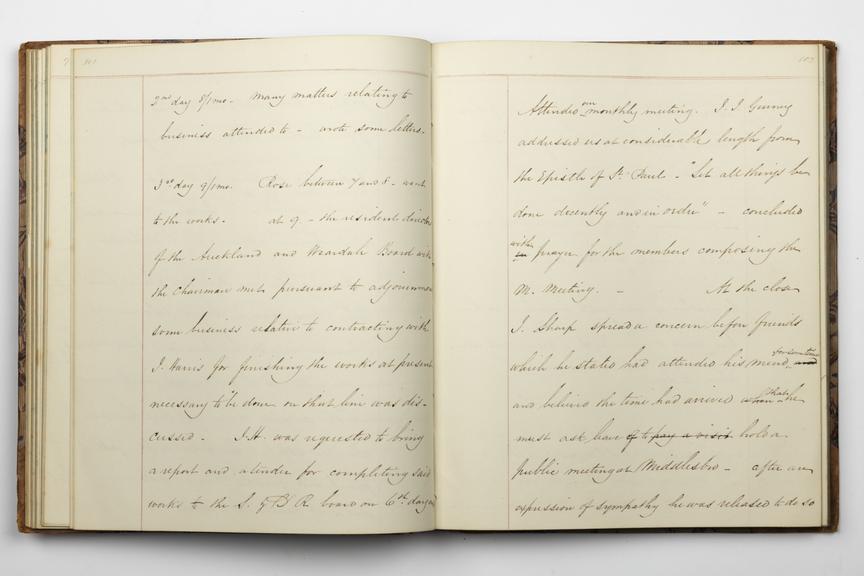 101
2nd day 8/1mo. Many matters relating to
business attended to - wrote some letters.
3rd day 9/1mo. Rose between 7 and 8 - went
to the works. at 9 - the resident director
of the Auckland and Weardale Board with
the Chairman met pursuant to adjournmen
some business relative to contracting with
J. Harris for finishing the works at present
necessary to be done on that line was dis-
cussed. J.H. was requested to bring
a report and a tender for completing said
works to the S. & D R. board on 6th day
103
Attended our monthly meeting. J. J Gurney
addressed us at considerable length from
the Epistle of St. Paul - "Let all things be
done decently and in order" - concluded
with
in prayer for the members composing the
M. Meeting. - At the close
J. Sharp spread a concern before friends
for some time
which he stated had attended his mind and
that
and believed the time had arrived when he
must ask leave of to pay a visit hold a
public meeting at Middlesbro - after an
expression of sympathy he was released to do so